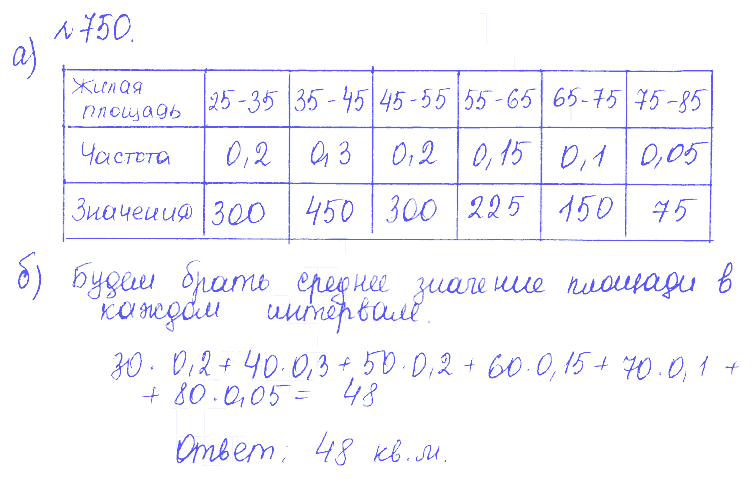 №750.
а)
Жилая площадь 25-35 35-45 45-55 55-65 65-75 75-85
Частота 0,2 0,3 0,2 0,15 0,1 0,05
Значения 300 450 300 225 150 75
б) Будем брать среднее значение площади в
каждом интервале.
30 · 0,2 + 40·0,3 + 50·0,2 + 60·0,15 + 70·0,1 +
+ 80·0,05 = 48
Ответ: 48 кв.м.